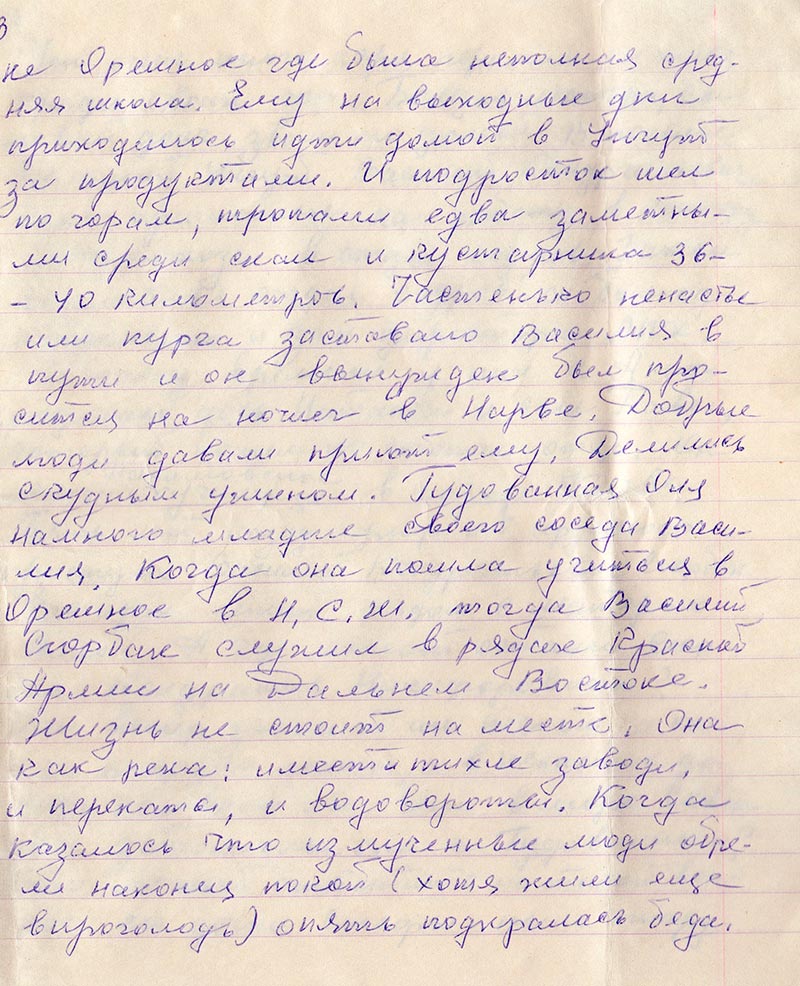 3
не Орешное где была неполная сред-
няя школа. Ему на выходные дни
приходилось идти домой в Унгут
за продуктами. И подросток шел
по горам, тропами едва заметны-
ми среди скал и кустарника 36-
- 40 километров. Частенько ненастье
или пурга заставало Василия в
пути и он вынужден был про-
сится на ночлег в Нарве. Добрые
люди давали приют ему. Делились
скудным ужином. Гудованная Оля
намного младше своего соседа Васи-
лия. Когда она пошла учиться в
Орешное в Н. С. Ш. тогда Василий
служил в рядах Красной
Армии на Дальнем Востоке.
Жизнь не стоит на месте. Она
как река: имеет и тихие заводи,
и перекаты, и водовороты. Когда
казалось что измученные люди обре-
ли наконец покой (хотя жили еще
впроголодь) опять подкралась беда.